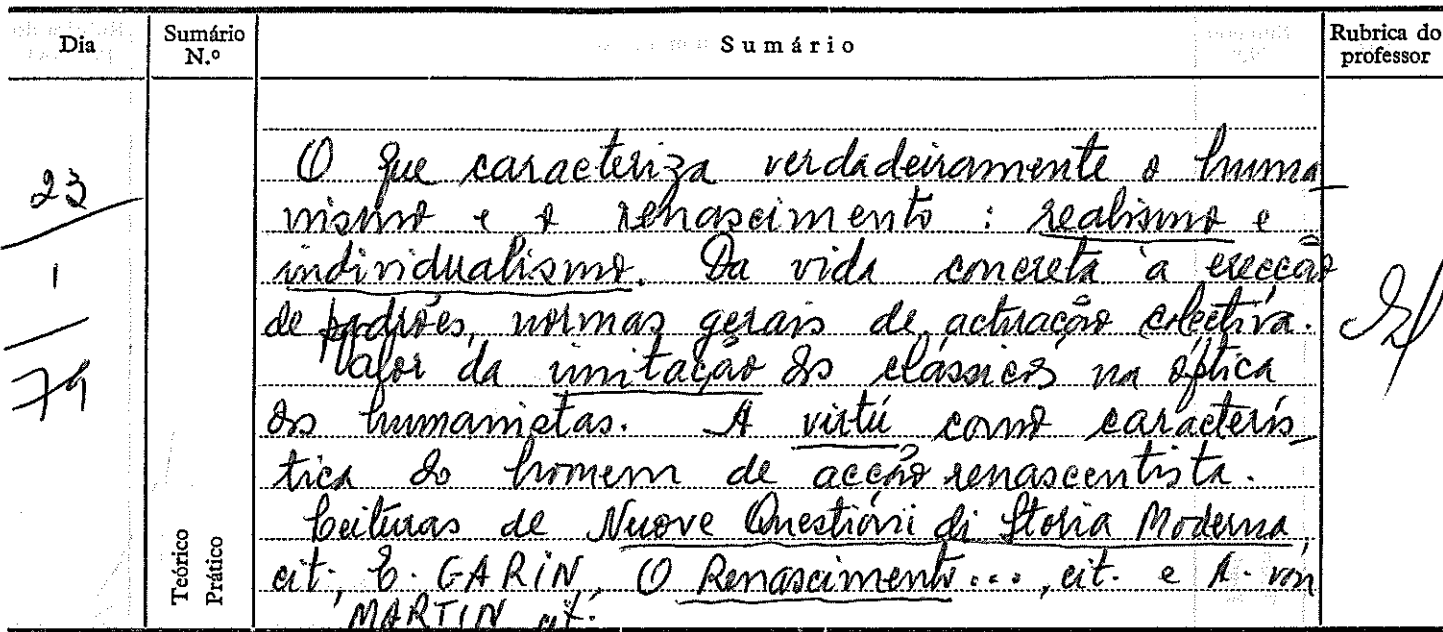 Dia
Sumário N.º
Sumário
Rubrica do professor
23
1
79
O que caracteriza verdadeiramente o huma
nismo e o renascimento : realismo e
individualismo. Da vida concreta à erecção
de padrões, normas gerais de actuação colectiva.
Valor da imitação dos clássicos na óptica
dos humanistas. A virtú como caracterís_
tica do homem de acção renascentista.
Leituras de Nuove Questioni di Storia Moderna,
cit., E. GARIN, O Renascimento..., cit. e A. von
MARTIN cit.
Teórico
Prático